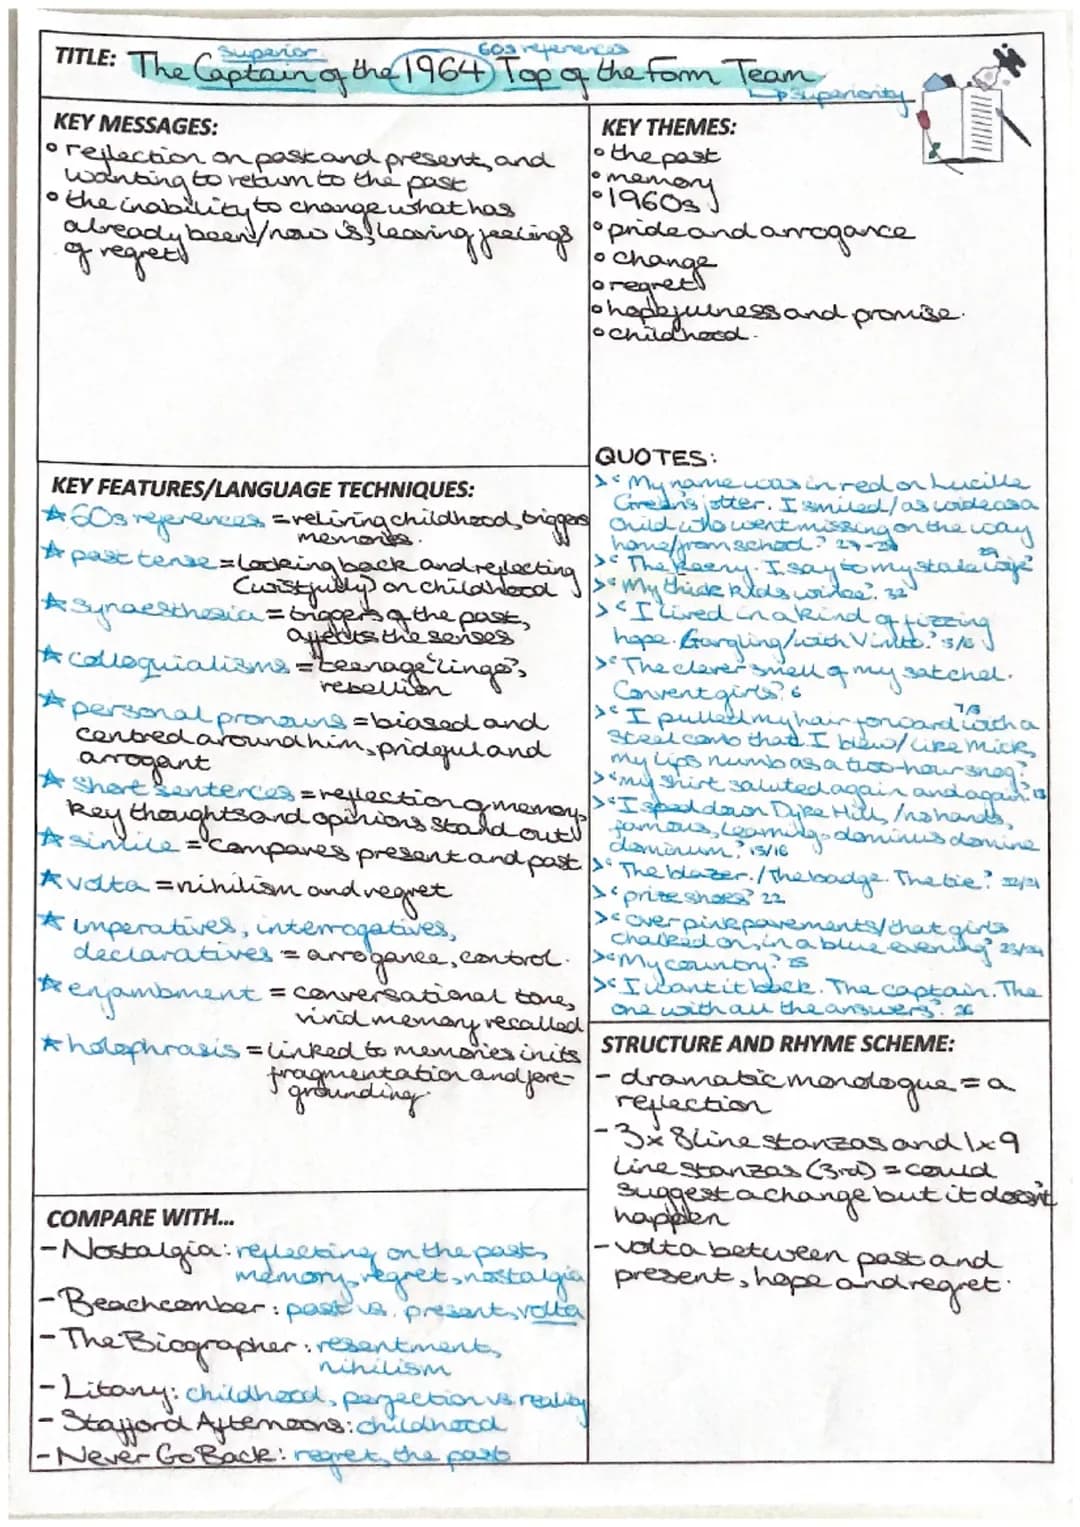 superior
60s references
TITLE: The Captain of the 1964 Top of the Form Team
↳superiority
KEY MESSAGES:
° reflection on past and present, and
wanting to return to the past
° the inability to change what has
already been/now is, leaving feelings
of regret
KEY THEMES:
° the past
° memory
° 1960s
° pride and arrogance
° change
° regret
° hopefulness and promise.
° childhood.
KEY FEATURES/LANGUAGE TECHNIQUES:
☆ 60s references = reliving childhood, triggers
memories.
☆ past tense = looking back and reflecting
(wistfully) on childhood
☆ synaesthesia = triggers of the past,
affects the senses
☆ colloquialisms = teenage 'lingo',
rebellion
☆ personal pronouns = biased and
centred around him, prideful and
arrogant
☆ short sentences = reflection of memory,
key thoughts and opinions stand out
☆ simile = compares present and past
☆ volta = nihilism and regret
☆ imperatives, interrogatives,
declaratives = arrogance, control.
☆ enjambment = conversational tone,
vivid memory recalled
☆ holophrasis = linked to memories in its
fragmentation and fore-
grounding.
QUOTES:
>'My name was in red on Lucille
Green's jotter. I smiled/as wide as a
child who went missing on the way
home/from school.' 27-29
>'The keeny. I say to my stale wife' 29
>'My thick kids wince'. 32
>'I lived in a kind of fizzing
hope. Gargling/with Vimto.' 5/6
>'The clever smell of my satchel.
Convent girls' 6
>'I pulled my hair forward with a 7/8
steel comb that I blew/like Mick,
my lips numb as a two-hour snog.'
>'my shirt saluted again and again.' 13
>'I sped down Dyke Hill,/no hands,
famous, learning, dominus domine
dominum.' 15/16
>'The blazer./The badge. The tie.'
>'prize shoes' 22
>'over pink pavements/that girls
chalked on, in a blue evening' 23/24
>'My country.' 25
>'I want it back. The captain. The
one with all the answers'. 26
STRUCTURE AND RHYME SCHEME:
- dramatic monologue = a
reflection
- 3x8 line stanzas and 1x9
line stanzas (3rd) = could
suggest a change but it doesn't
happen
- volta between past and
present, hope and regret.
COMPARE WITH...
- Nostalgia: reflecting on the past,
memory, regret, nostalgia
- Beachcomber: past vs. present, volta
- The Biographer: resentment,
nihilism
- Litany: childhood, perfection vs reality
- Stafford Afternoons: childhood
- Never Go Back: regret, the past